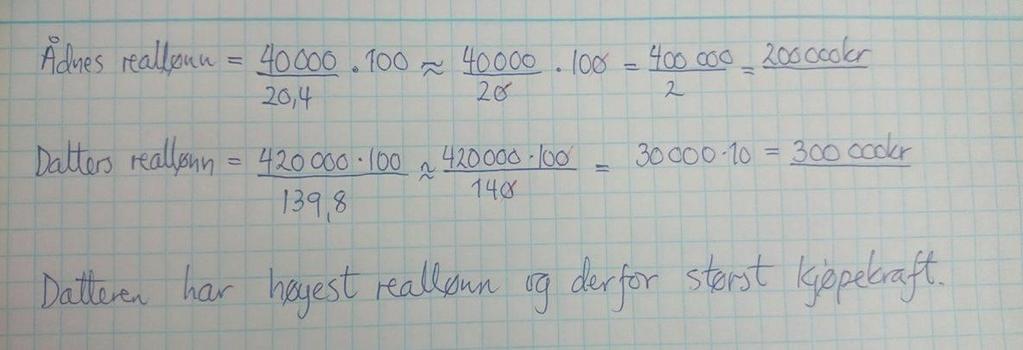 Ådnes reallønn = 40000/20,4 . 100 ≈ 40000/20 . 100 = 400 000/2 = 200 000kr
Datters reallønn = 420000·100/139,8 ≈ 420000·100/140 = 30000·10 = 300 000kr
Datteren har høyest reallønn og derfor størst kjøpekraft.